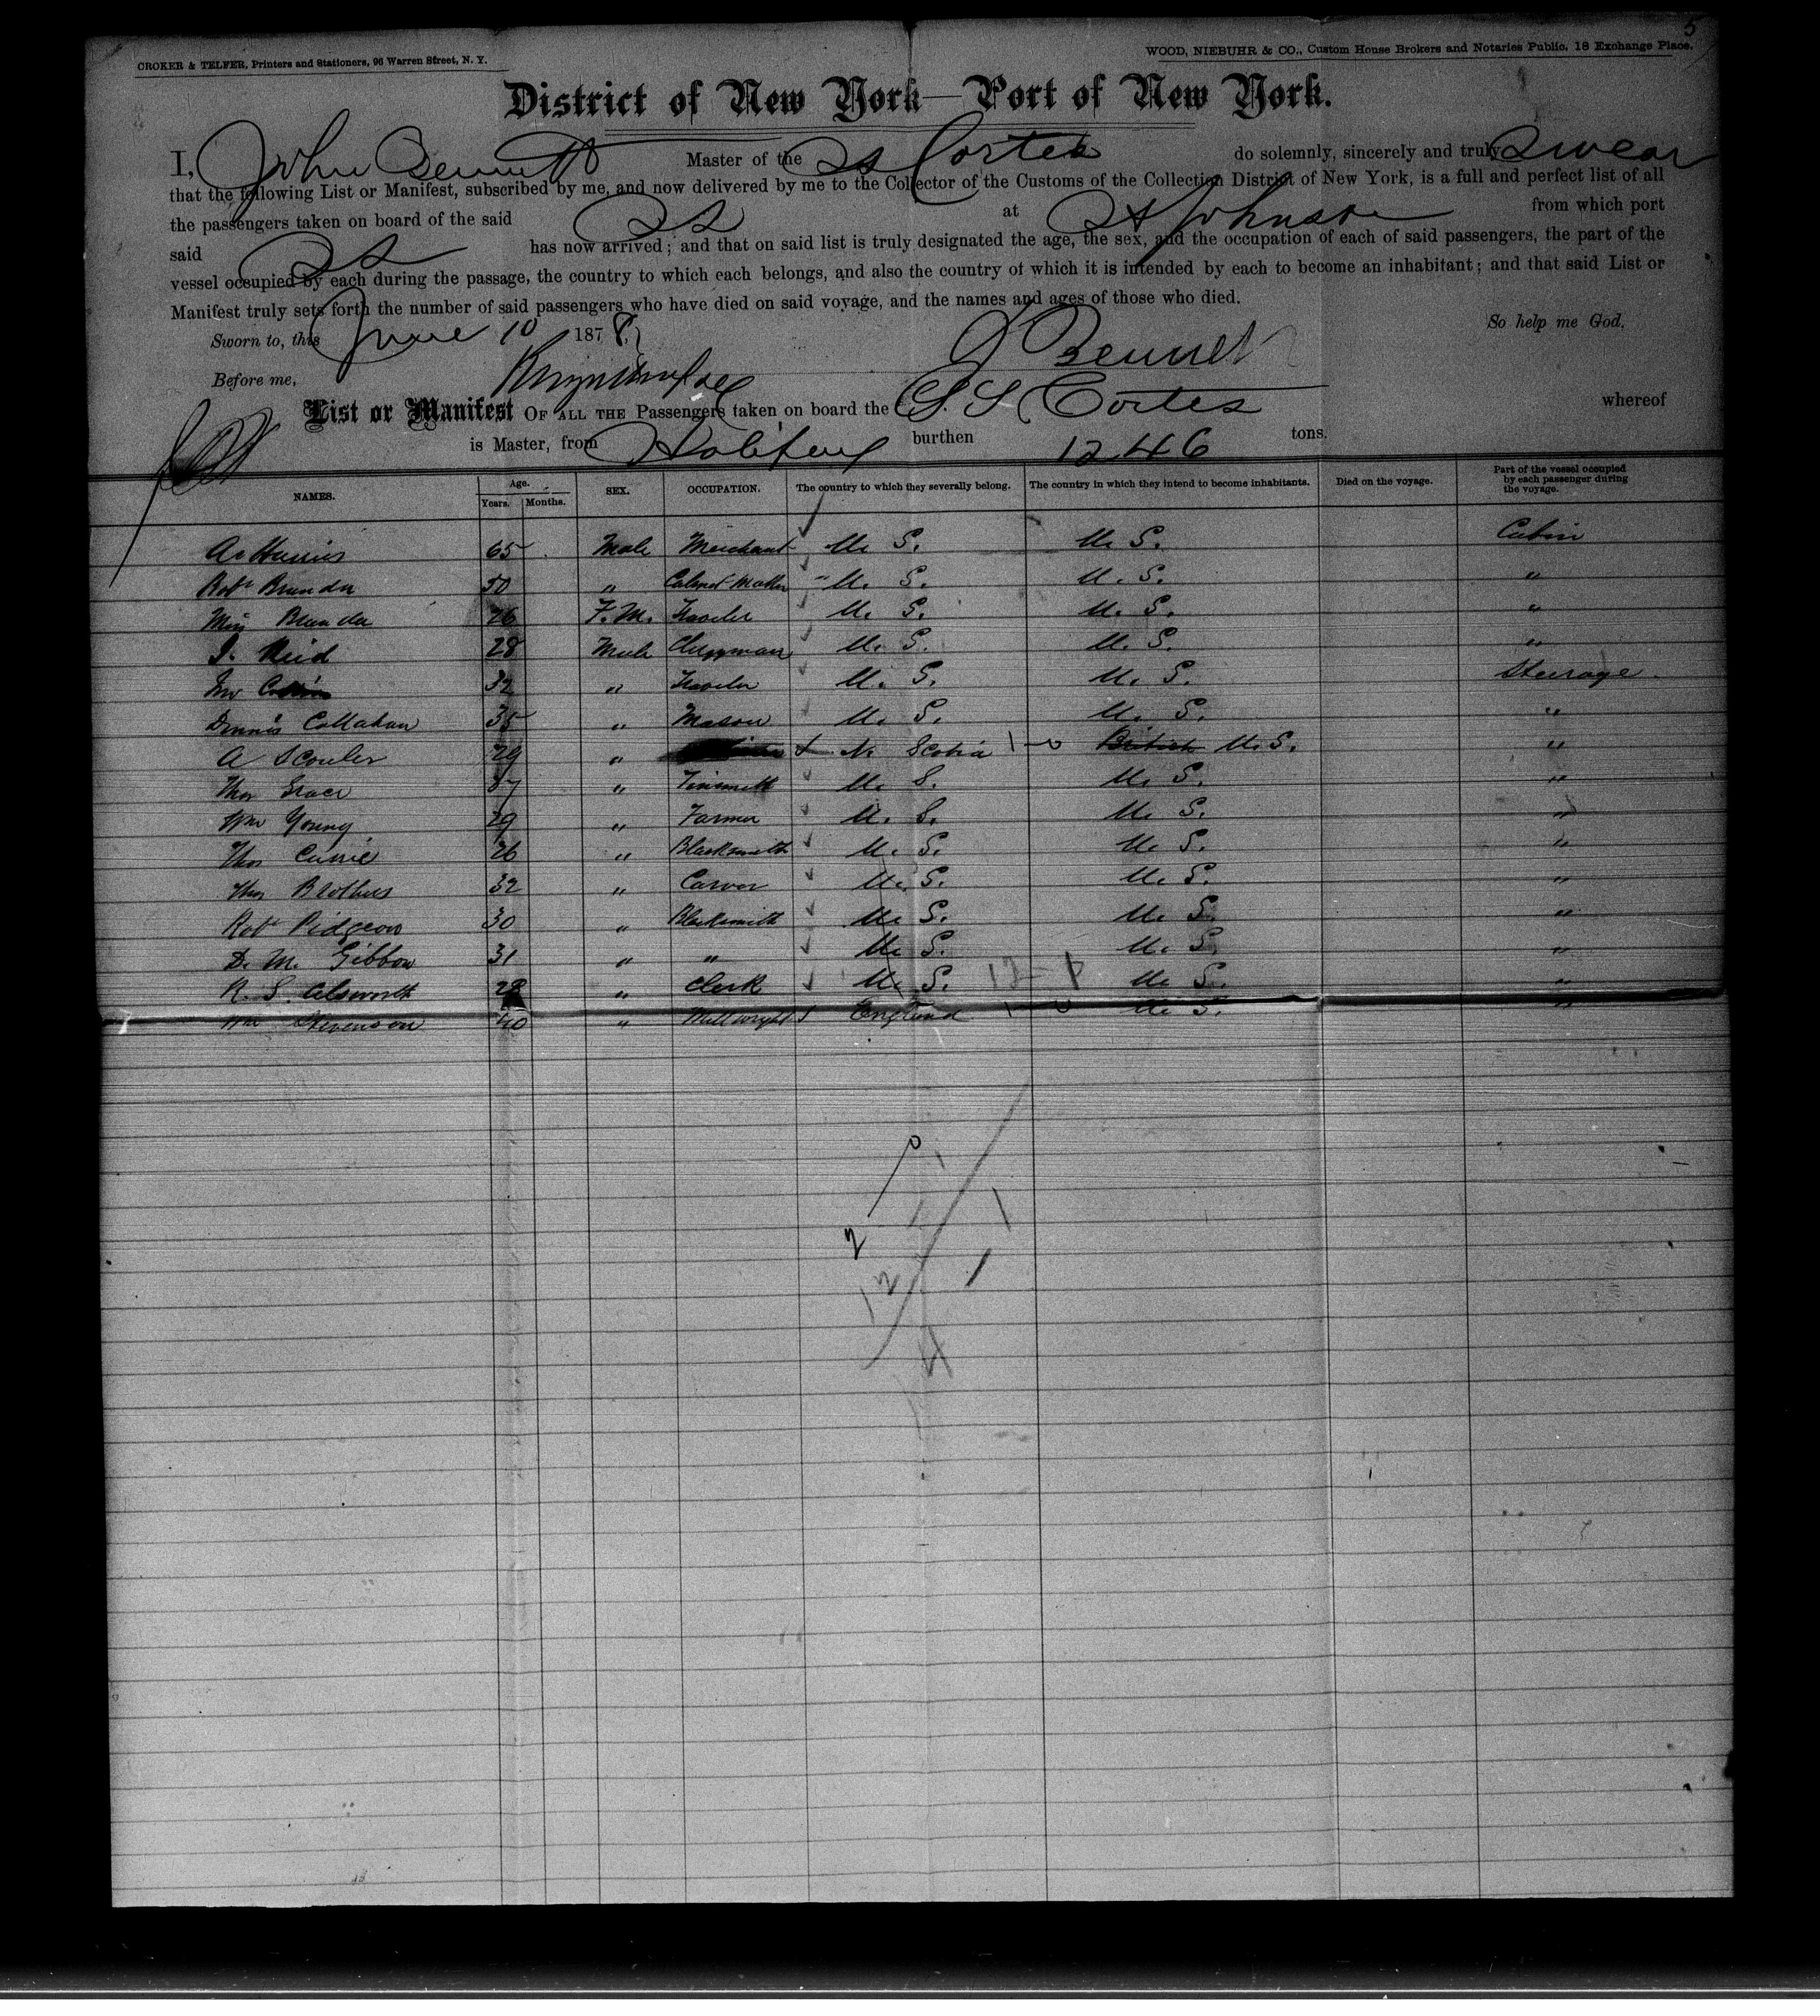 5
CROKER & TELFER, Printers and Stationers, 96 Warren Street, N. Y.
WOOD, NIEBUHR & CO., Custom House Brokers and Notaries Public, 18 Exchange Place.
District of New York—Port of New York.
I, John Bennett Master of the SS Cortes do solemnly, sincerely and truly Swear
that the following List or Manifest, subscribed by me, and now delivered by me to the Collector of the Customs of the Collection District of New York, is a full and perfect list of all
the passengers taken on board of the said SS at St Johns from which port
said SS has now arrived; and that on said list is truly designated the age, the sex, and the occupation of each of said passengers, the part of the
vessel occupied by each during the passage, the country to which each belongs, and also the country of which it is intended by each to become an inhabitant; and that said List or
Manifest truly sets forth the number of said passengers who have died on said voyage, and the names and ages of those who died.
So help me God.
Sworn to, this June 10 1878
J Bennett
Before me,
List or Manifest OF ALL THE Passengers taken on board the S. S Cortes whereof
is Master, from Halifax burthen 1246 tons.
NAMES. Age. Years. Months. SEX. OCCUPATION. The country to which they severally belong. The country in which they intend to become inhabitants. Died on the voyage. Part of the vessel occupied by each passenger during the voyage.
65 Male Merchant U. S. U. S. Cabin
Robt 50 " Cabinet Maker U. S. U. S. "
Miss 26 F. M. Traveler U. S. U. S. "
Reid 28 Male Clergyman U. S. U. S. "
Mr 32 " Traveler U. S. U. S. Steerage
Dennis Callahan 35 " Mason U. S. U. S. "
A Scouler 29 " N. Scotia 1-0 British U. S. "
Thos Grace 37 " Tinsmith U. S. U. S. "
Wm Young 29 " Farmer U. S. U. S. "
Thos Currie 26 " Blacksmith U. S. U. S. "
Thos Brothers 32 " Carver U. S. U. S. "
Robt Pidgeon 30 " Blacksmith U. S. U. S. "
D. M. Gibbon 31 " " U. S. U. S. "
R. S. Alsworth 28 " Clerk U. S. U. S. "
Wm Stevenson 40 " Millwright England 1-0 U. S. "
2 0
12